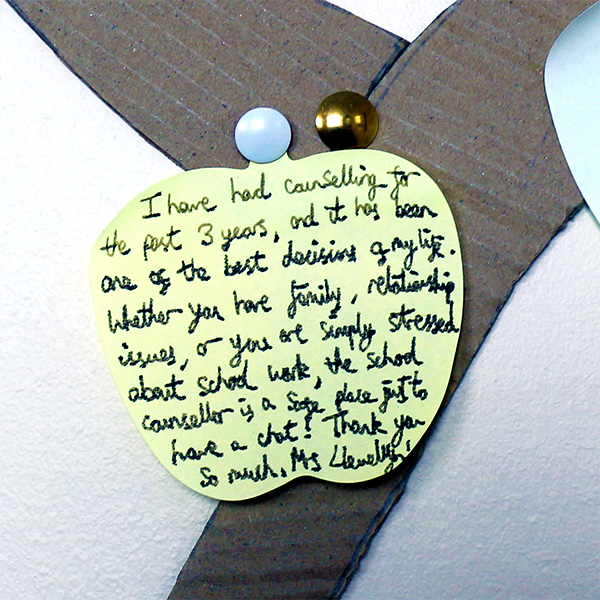 I have had counselling for
the past 3 years, and it has been
one of the best decisions of my life.
Whether you have family, relationship
issues, or you are simply stressed
about school work, the school
counsellor is a safe place just to
have a chat! Thank you
so much, Ms Llewellyn!